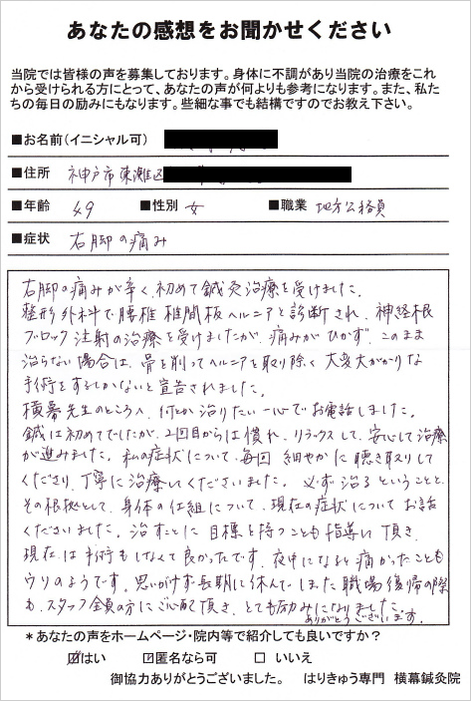 あなたの感想をお聞かせください
当院では皆様の声を募集しております。身体に不調があり当院の治療をこれ
から受けられる方にとって、あなたの声が何よりも参考になります。また、私た
ちの毎日の励みにもなります。些細な事でも結構ですのでお教え下さい。
■お名前(イニシャル可)
■住所 神戸市東灘区
■年齢 49 ■性別 女 ■職業 地方公務員
■症状 右脚の痛み
右脚の痛みが辛く、初めて鍼灸治療を受けました。
整形外科で腰椎椎間板ヘルニアと診断され、神経根
ブロック注射の治療を受けましたが、痛みがひかず、このまま
治らない場合は、骨を削ってヘルニアを取り除く大変大がかりな
手術をするしかないと宣告されました。
横幕先生のところへ、何とか治りたい一心でお電話しました。
鍼は初めてでしたが、2回目からは慣れ、リラックスして、安心して治療
が進みました。私の症状について、毎回 細やかに聴き取りして
くださり、丁寧に治療してくださいました。必ず治るということと、
その根拠として、身体の仕組について、現在の症状についてお話
くださいました。治すことに目標を持つことも指導して頂き、
現在は手術もしなくて良かったです。夜中になると痛かったことも
ウソのようです。思いがけず長期に休んでしまった職場復帰の際
も、スタッフ全員の方にご心配頂き、とても励みになりました。
ありがとうございます。
*あなたの声をホームページ・院内等で紹介しても良いですか?
☑はい ☑匿名なら可 □ いいえ
御協力ありがとうございました。 はりきゅう専門 横幕鍼灸院